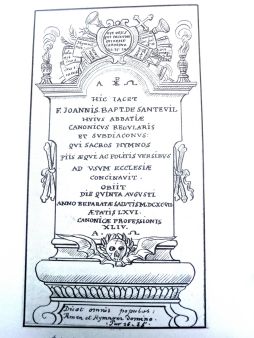 A Ω
HIC IACET
F. IOANNIS. BAPT. DE SANTEVIL
HVIVS ABBATIÆ
CANONICVS REGVLARIS
ET SVBDIACONVS:
QVI SACROS HYMNOS
PIIS ÆQVE AC POLITIS VERSIBVS
AD VSVM ECCLESIÆ
CONCINAVIT.
OBIIT
DIE QVINTA AVGVSTI
ANNO REPARATÆ SALVTIS M.DC.XCVII
ÆTATIS LXVI.
CANONICÆ PROFESSIONIS
XLIV.
A Ω
Dicet omnis populus:
Amen et Hymnum Domino.
Par 16. 35